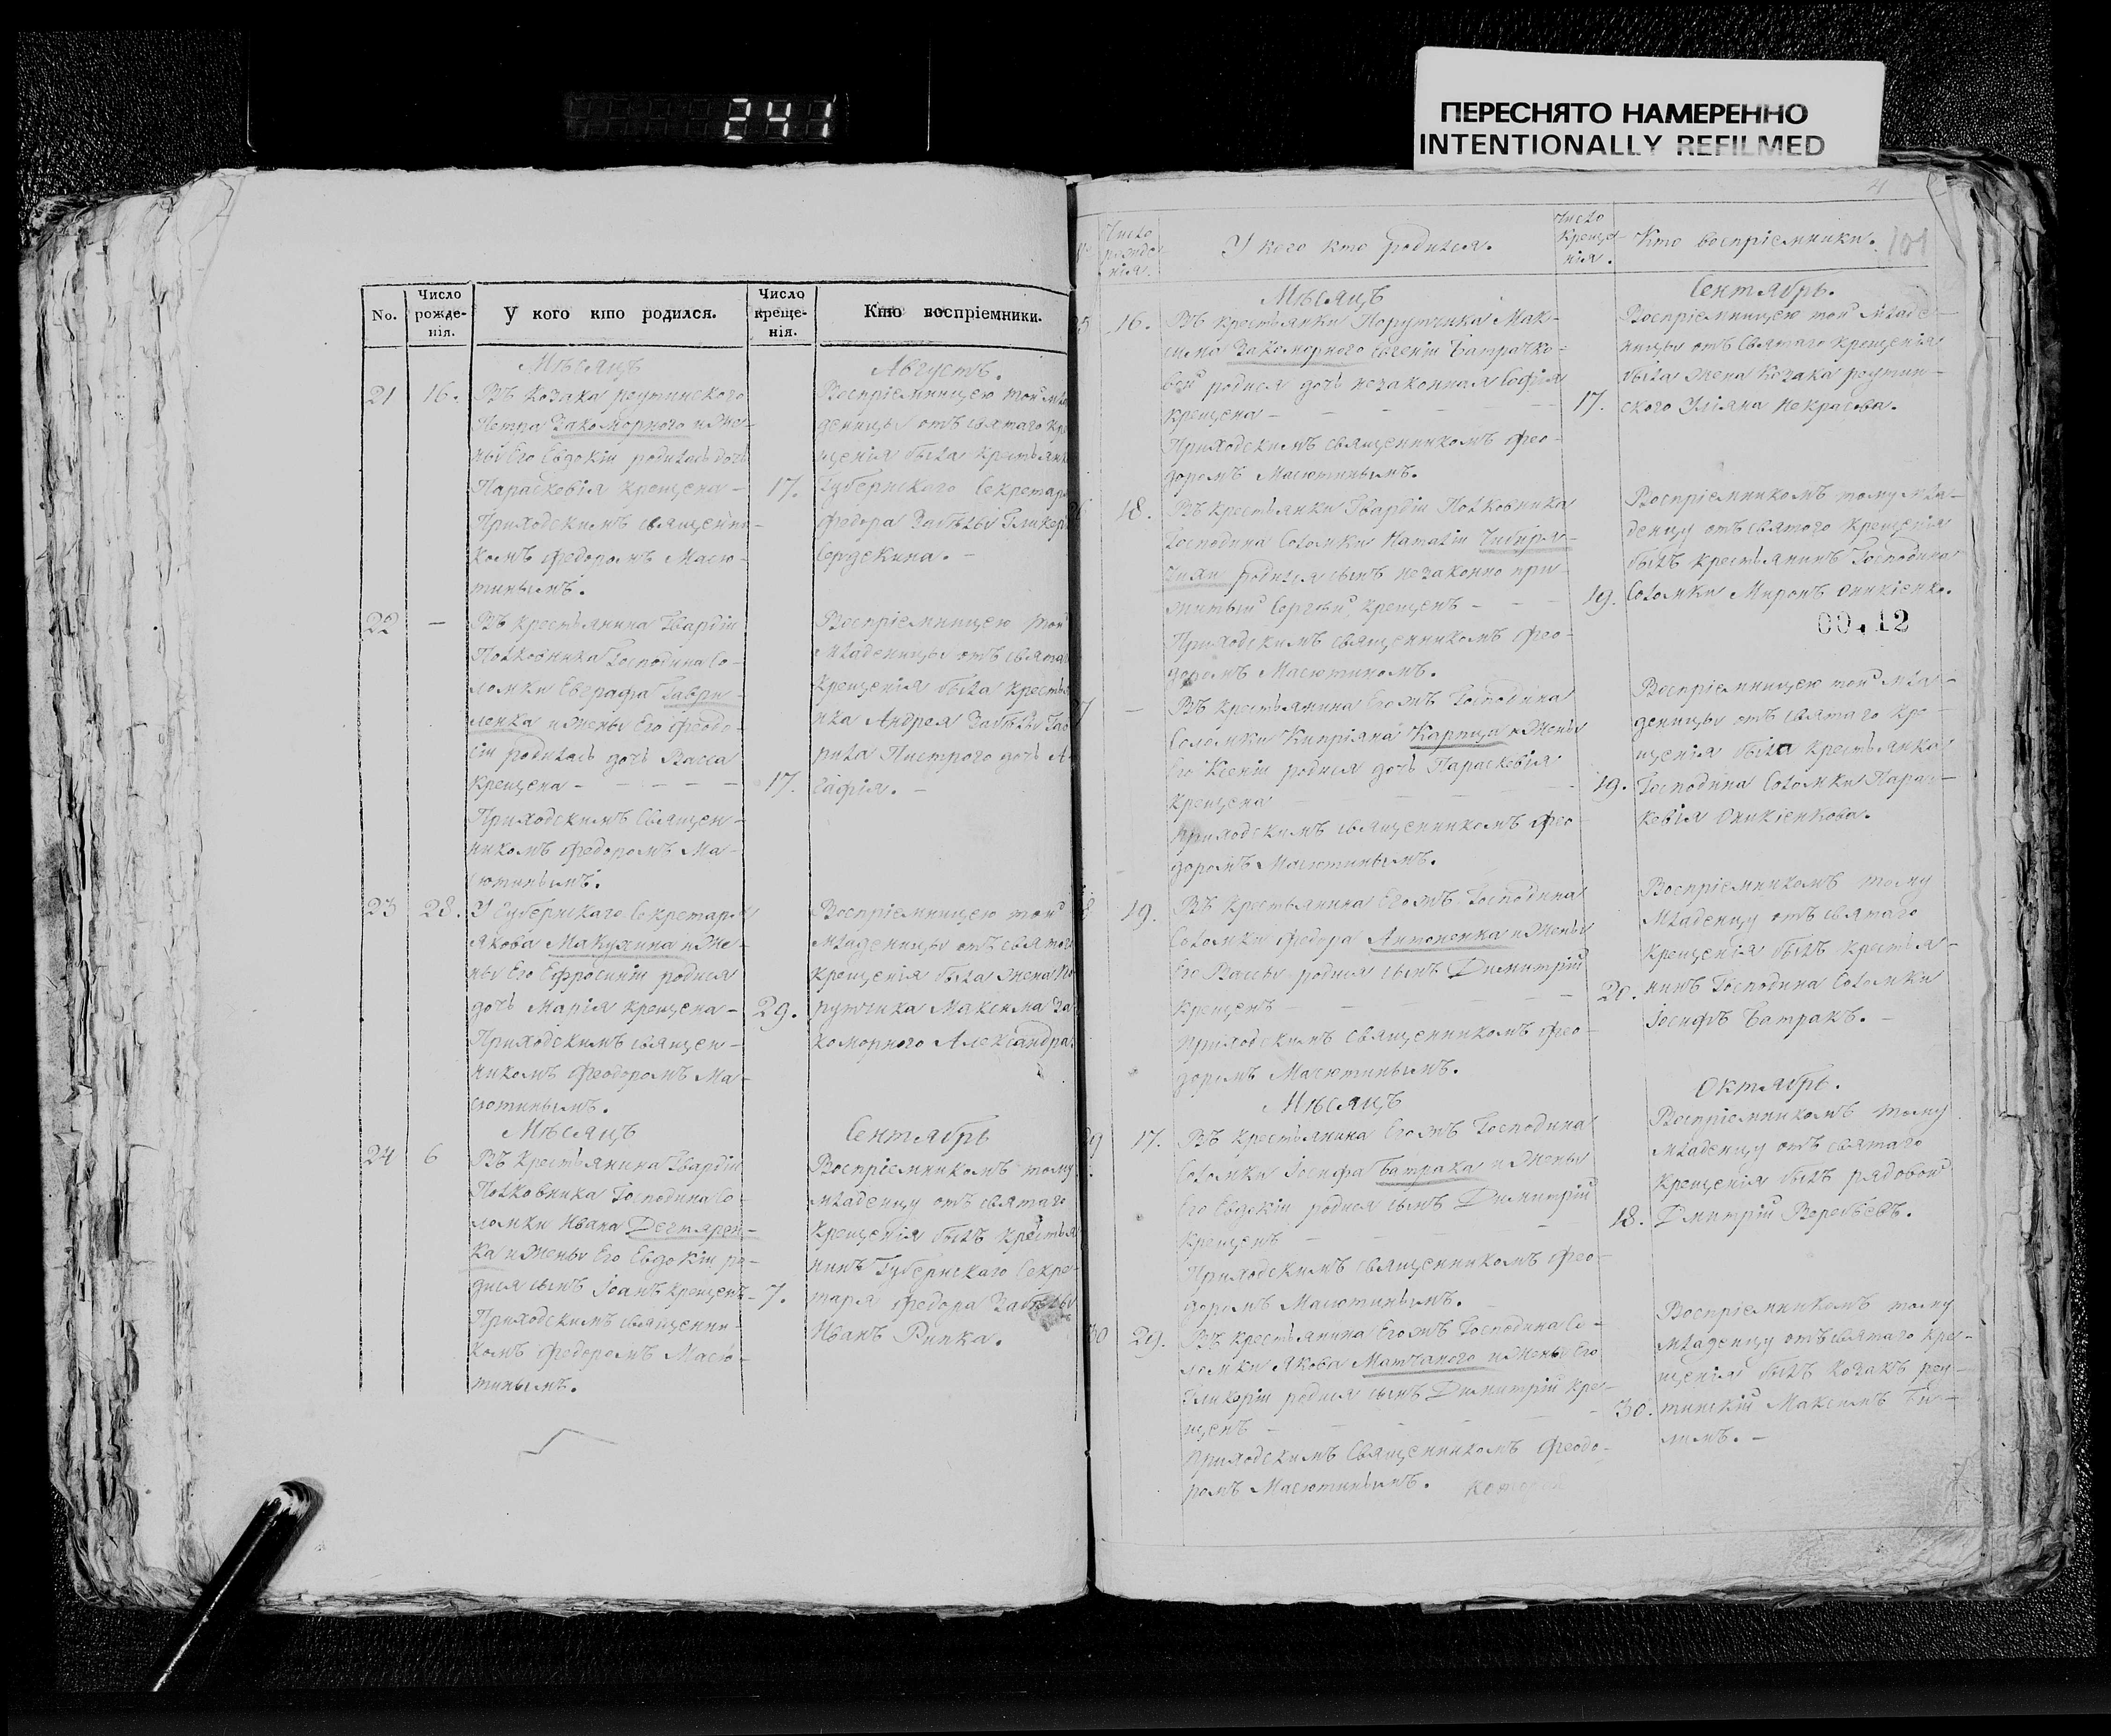 241
ПЕРЕСНЯТО НАМЕРЕННО
INTENTIONALLY REFILMED
No.
Число рожде- нія.
У кого кто родился.
Число креще- нія.
Кто воспріемники.
Мѣсяцъ
Августъ.
21
16.
Въ козака реутинского
Петра Закоморного и же-
ны Его Евдокіи родилась дочь
Параскевія крещена –
Приходскимъ священни-
комъ Федоромъ Масю-
тинымъ.
17.
Воспріемницею той мла
деницы отъ святаго кре
щенія была крестьянк
Губернского Секретар
Федора Забѣлы Гликер
Сердекина. –
22
–
Въ крестьянина Гвардіи
Полковника Господина Со-
ломки Евграфа Гаври-
ленка и жены Его Феодо-
сіи родилась дочь Васса
крещена – – – – –
Приходскимъ Священ-
никомъ Федоромъ Ма-
сютинымъ.
17.
Воспріемницею той
младеницы отъ святаг
крещенія была крестья
нка Андрея Забѣлы Гав
рила Пистрого дочь А-
гафія. –
23
28.
У Губернскаго Секретаря
Якова Макухина и Же-
ны Его Ефросиніи родися
дочь Марія крещена –
Приходскимъ священ-
никомъ Феодоромъ Ма-
сютинымъ.
29.
Воспріемницею той
младеницы отъ святого
крещенія была жена По
рутчика Максима За
коморного Александра
Мѣсяцъ
Сентябрь
24
6
Въ крестьянина Гвардіи
Полковника Господина Со-
ломки Ивана Дегтярен-
ка и жены Его Евдокіи ро-
дися сынъ Іоанъ крещенъ –
Приходскимъ священни-
комъ Федоромъ Масю-
тинымъ.
7.
Воспріемникомъ тому
младенцу отъ святаго
крещенія былъ крестья
нинъ Губернскаго Секре-
таря Федора Забѣлы
Иванъ Рипка.
4
101
Число рожде- нія.
У кого кто родился.
Число креще- нія.
Кто воспріемники.
Мѣсяцъ
Сентябрь.
5
16.
Въ крестьянки Порутчика Мак-
сима Закоморного Евгеніи Батрачко-
вой родися дочь незаконная Софія
крещена – – – –
Приходскимъ священникомъ Фео-
доромъ Масютинымъ.
17.
Воспріемницею той младе-
ницы отъ святаго крещенія
была жена козака реутин-
ского Уліяна Некрасова.
18.
Въ крестьянки Гвардіи Полковника
Господина Соломки Наталіи
родился сынъ незаконно при-
житый Сергѣй, крещенъ – – –
Приходскимъ священникомъ Фео-
доромъ Масютиномъ.
19.
Воспріемникомъ тому мла-
денцу отъ святого крещенія
былъ крестьянинъ Господина
Соломки Миронъ Оникіенко.
00.12
7
–
Въ крестьянина Егожъ Господина
Соломки Кипріяна Карпица и жены
Его Ксеніи родися дочь Параскевія
крещена – – – –
Приходскимъ священникомъ Фео-
доромъ Масютинымъ.
19.
Воспріемницею той мла-
деницы отъ святаго кре-
щенія была крестьянка
Господина Соломки Парас-
кевія Оникіенкова.
8
19.
Въ крестьянина Егожъ Господина
Соломки Федора Антоненка и жены
Его Вассы родися сынъ Димитрій
крещенъ – – – –
Приходскимъ священникомъ Фео-
доромъ Масютинымъ.
20.
Воспріемникомъ тому
младенцу отъ святаго
крещенія былъ крестья-
нинъ Господина Соломки
Іосифъ Батракъ. –
Мѣсяцъ
Октябрь.
29
17.
Въ крестьянина Егожъ Господина
Соломки Іосифа Батрака и жены
Его Евдокіи родися сынъ Димитрій
крещенъ – – –
Приходскимъ священникомъ Фео-
доромъ Масютинымъ.
18.
Воспріемникомъ тому
младенцу отъ святаго
крещенія былъ рядовой
Дмитрій Веребьевъ.
30
29.
Въ крестьянина Егожъ Господина Со-
ломки Якова Матчаного и жены Его
Гликеріи родися сынъ Димитрій кре-
щенъ – – – –
Приходскимъ Священникомъ Феодо-
ромъ Масютинымъ.
30.
Воспріемникомъ тому
младенцу отъ святаго кре-
щенія былъ козакъ реу-
тинскій Максимъ